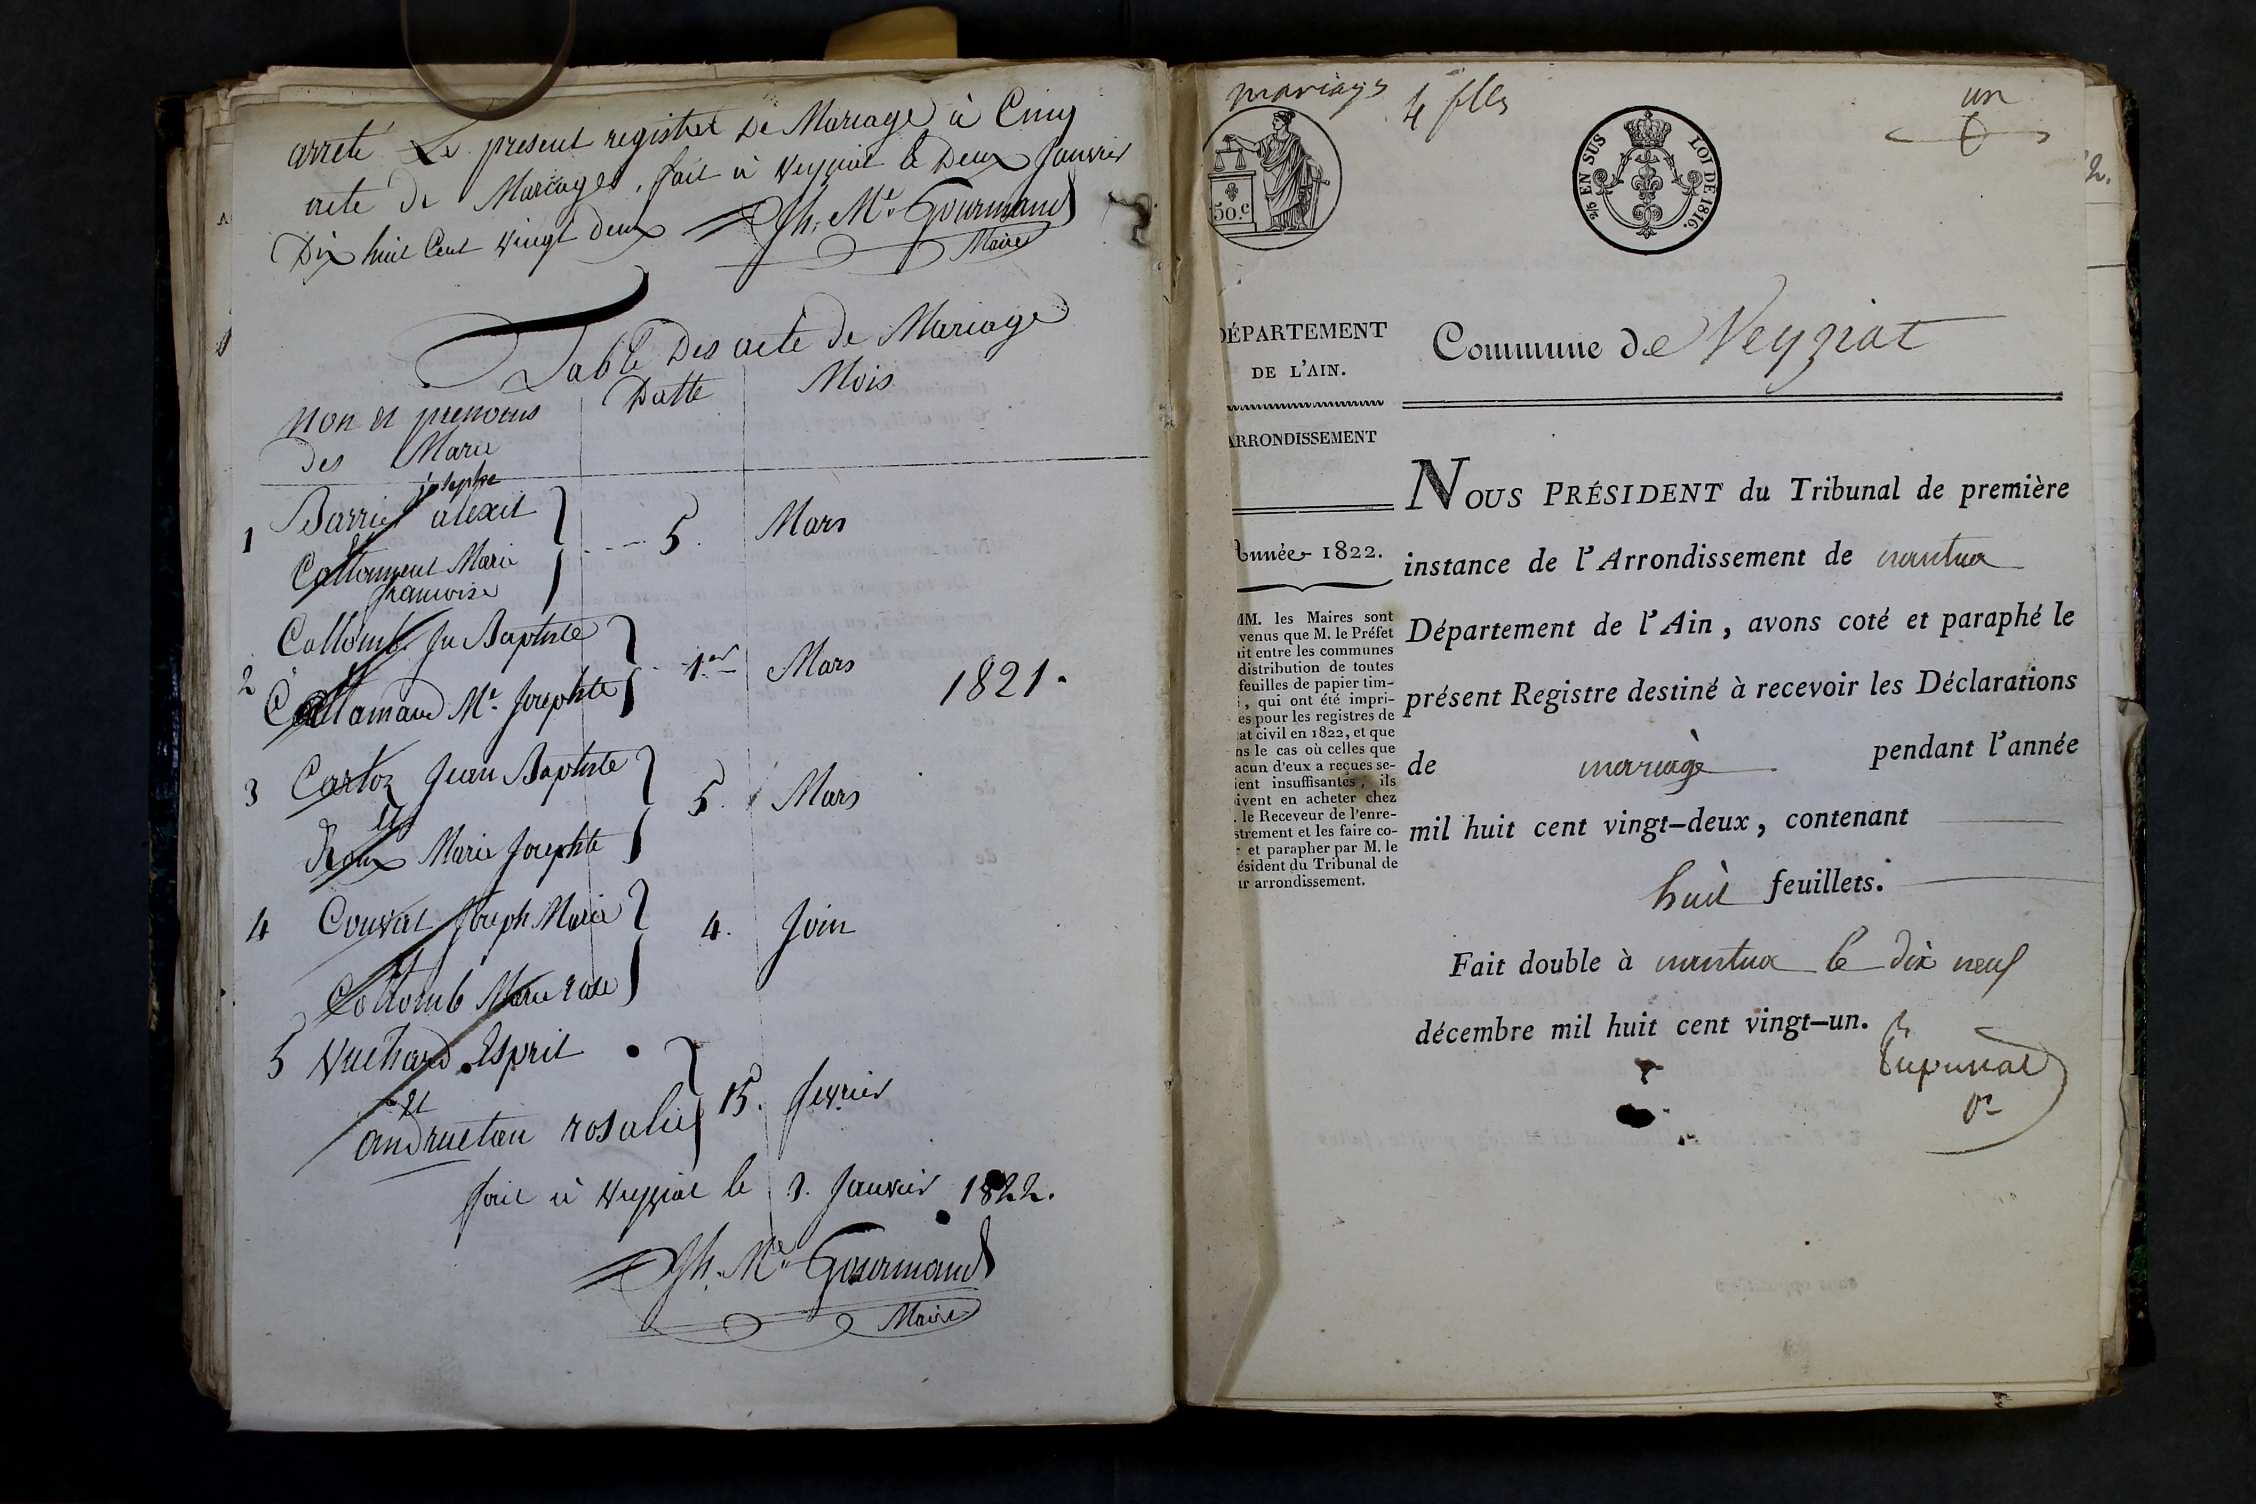 arreté Le present registre De Mariage à Cinq
acte De Mariages, fait à Veyziat le Deux Janvier
Dix huit Cent vingt deux Jh. Mie Gourmand
Maire
Table Des acte de Mariage
Non et prenoms
des Marié
Datte
Mois
josephe
1 Barrit alexit
et
Collomyeut Marie
francoise
5
Mars
2 Collomb Jn Baptiste
et
Callamand Me Josephte
1er
Mars
1821.
3 Cartoz Jean Baptiste
et
Roux Marie Josephte
5.
Mars
4 Convat Joseph Marie
et
Collomb Marie rose
4.
Join
5 Vuchard Esprit
et
andruetan rosalie
15.
fevrier
fait à Veyziat le 3. Janvier 1822.
Jh. Mie Gourmand
Maire
mariages
4 flles
un
50.c
2/5 EN SUS LOI DE 1816.
2.
DÉPARTEMENT
DE L'AIN.
ARRONDISSEMENT
Année 1822.
MM. les Maires sont
venus que M. le Préfet
it entre les communes
distribution de toutes
feuilles de papier tim-
, qui ont été impri-
es pour les registres de
at civil en 1822, et que
ns le cas où celles que
acun d'eux a reçues se-
ient insuffisantes, ils
ivent en acheter chez
. le Receveur de l'enre-
strement et les faire co-
r et parapher par M. le
ésident du Tribunal de
ur arrondissement.
Commune de Veyziat
NOUS PRÉSIDENT du Tribunal de première
instance de l'Arrondissement de nantua
Département de l'Ain, avons coté et paraphé le
présent Registre destiné à recevoir les Déclarations
de mariage pendant l'année
mil huit cent vingt-deux, contenant
huit feuillets.
Fait double à nantua le dix neuf
décembre mil huit cent vingt-un.